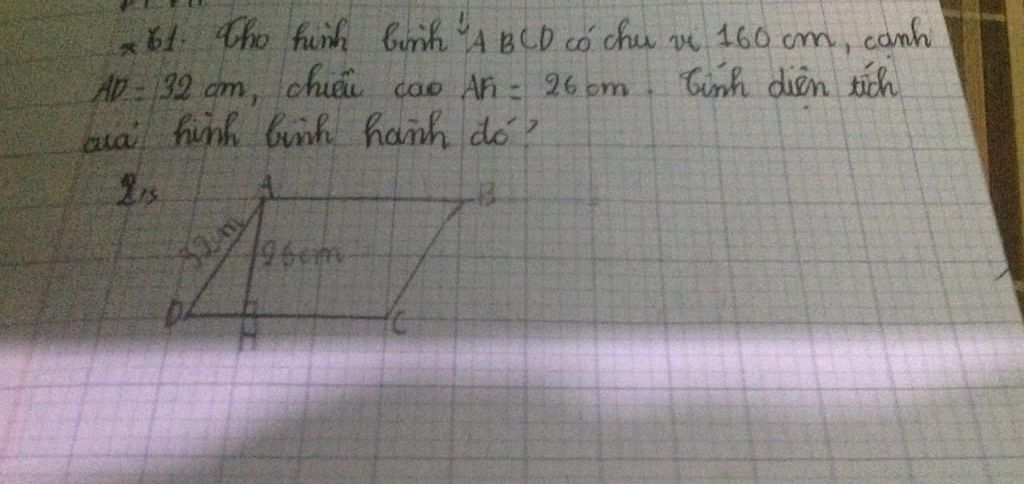 B1. Cho hình bình ABCD có chu vi 160 cm, cạnh
AD = 32 cm, chiều cao AH = 26 cm. Tính diện tích
của hình bình hành đó?
A
B
32cm
26cm
D
C
H